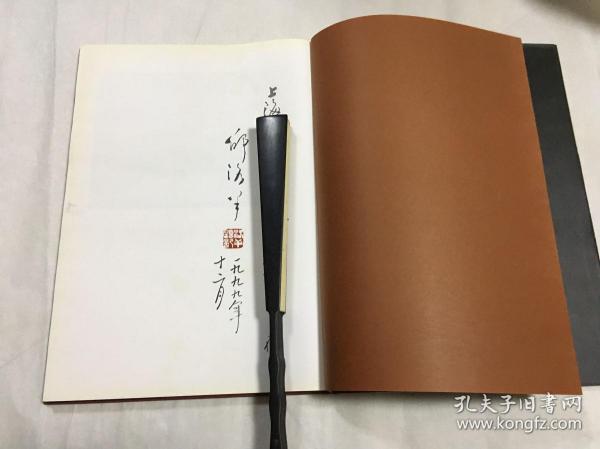 上海
邹洛羊
一九九九年
十二月
孔夫子旧书网
www.kongfz.com